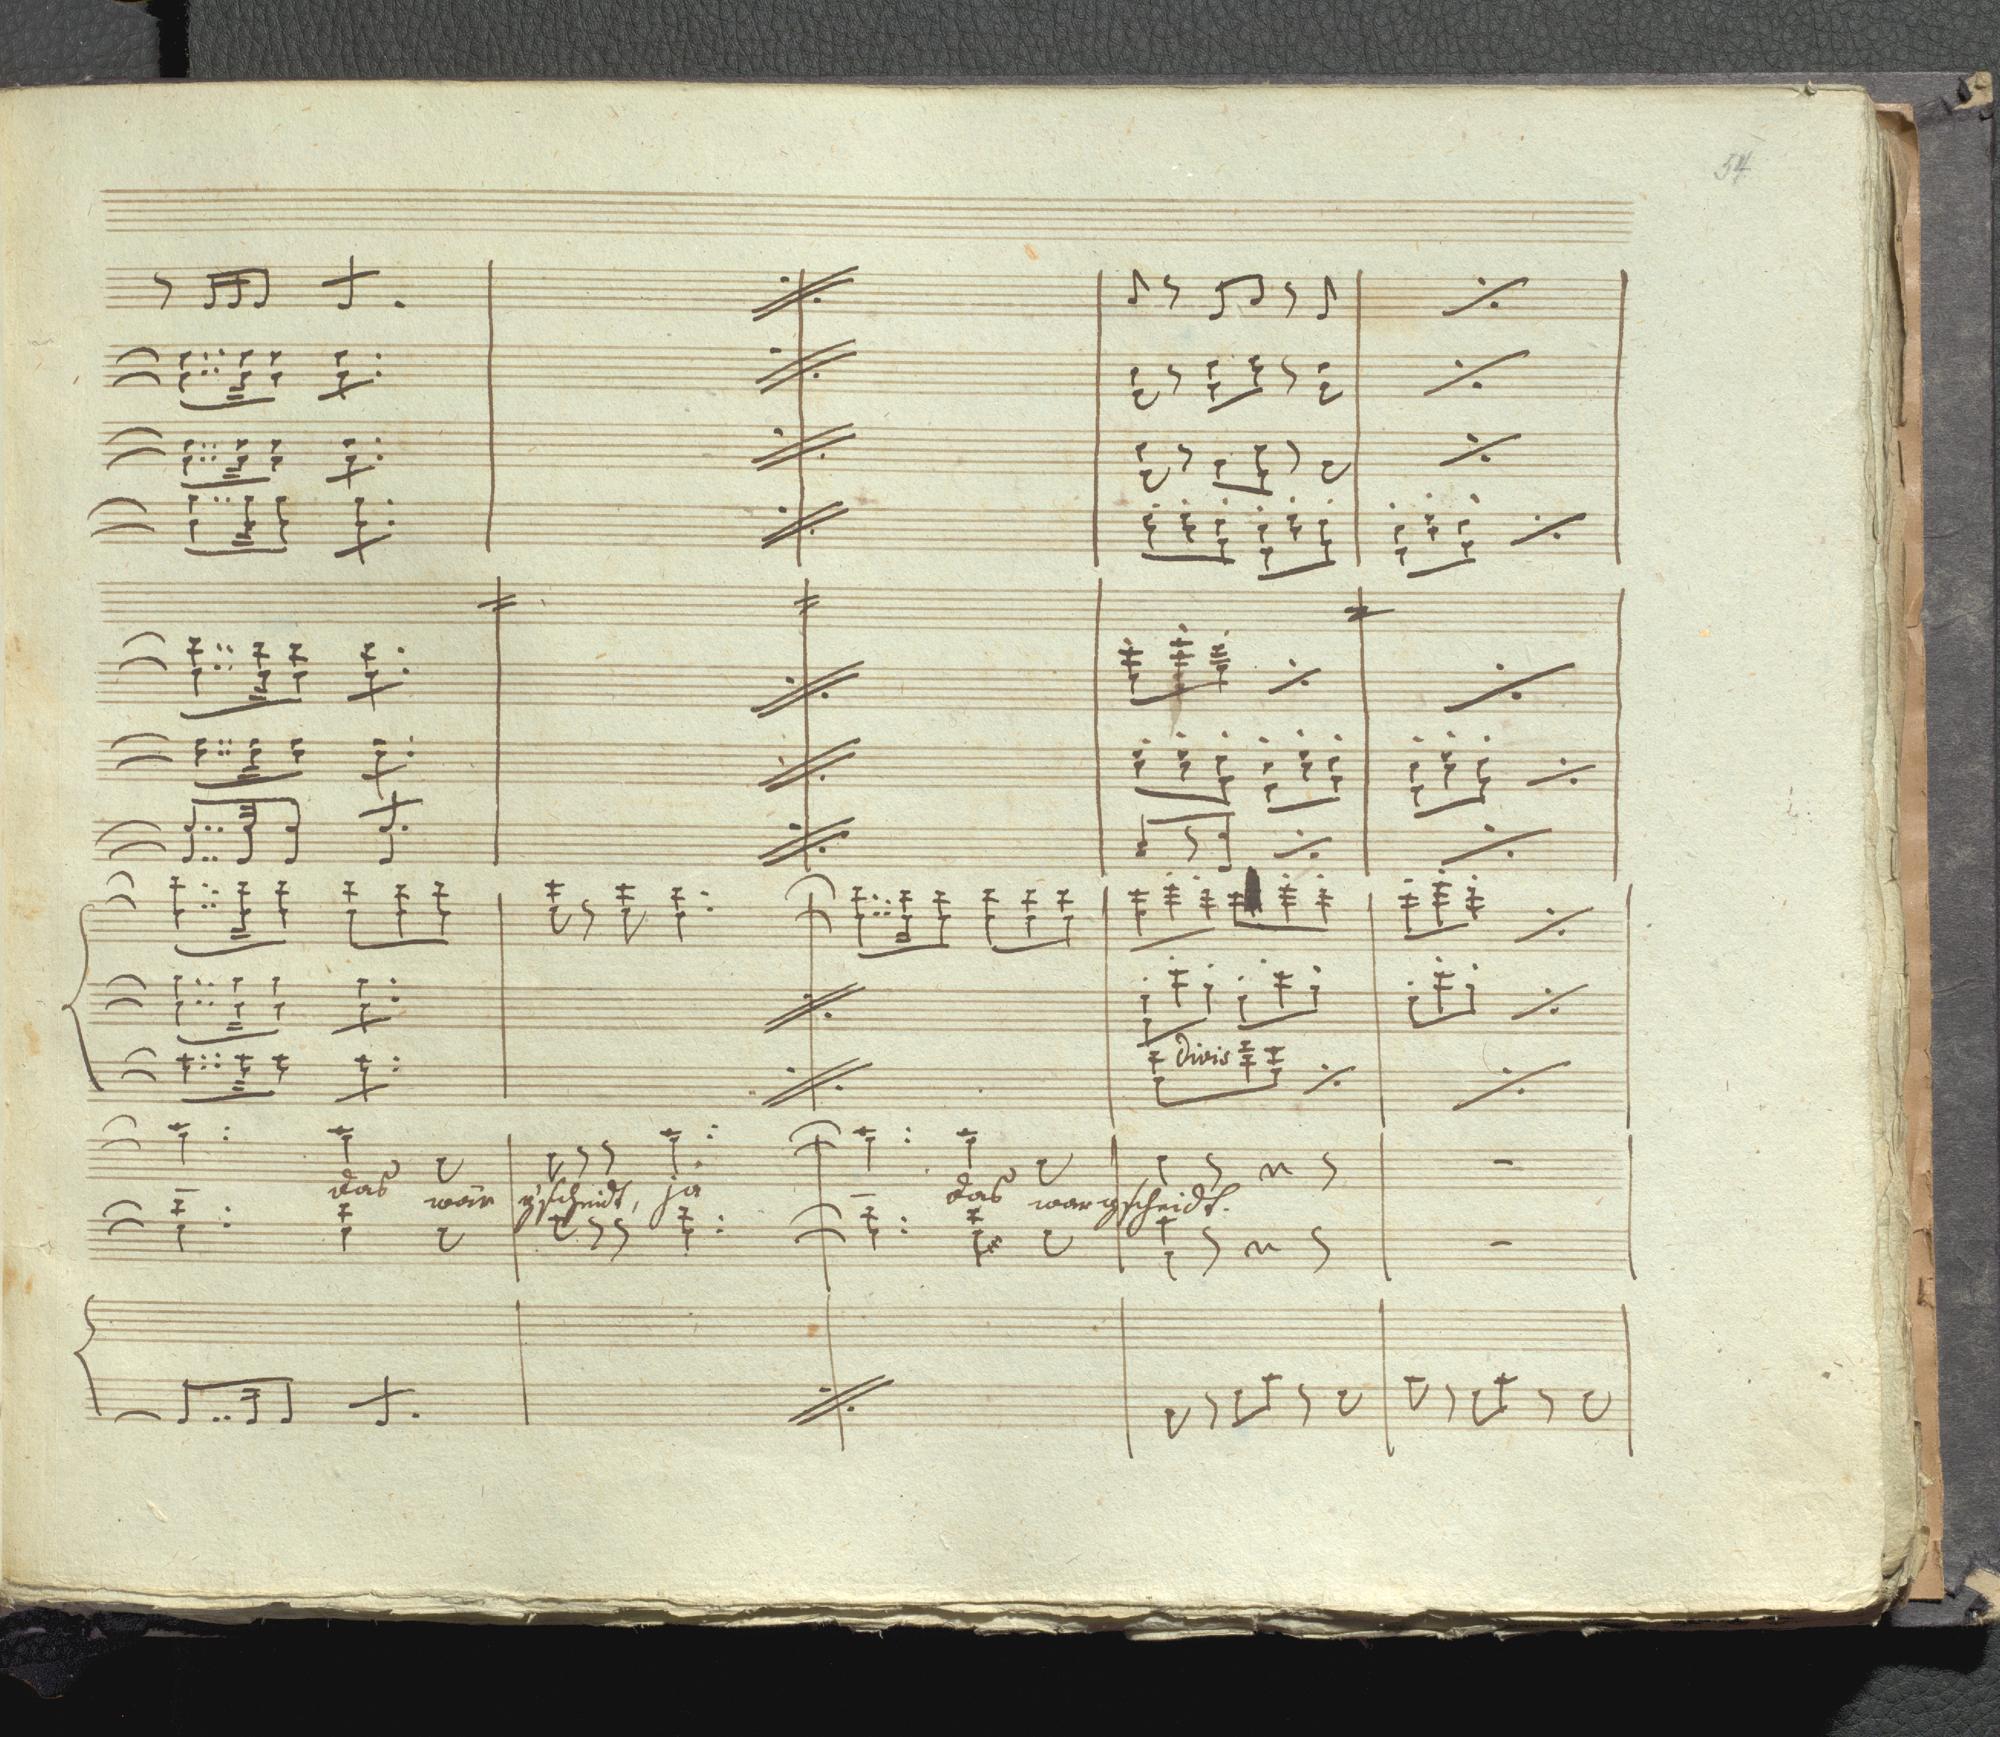 54
divis
das wär g'scheidt, ja das war gscheidt.